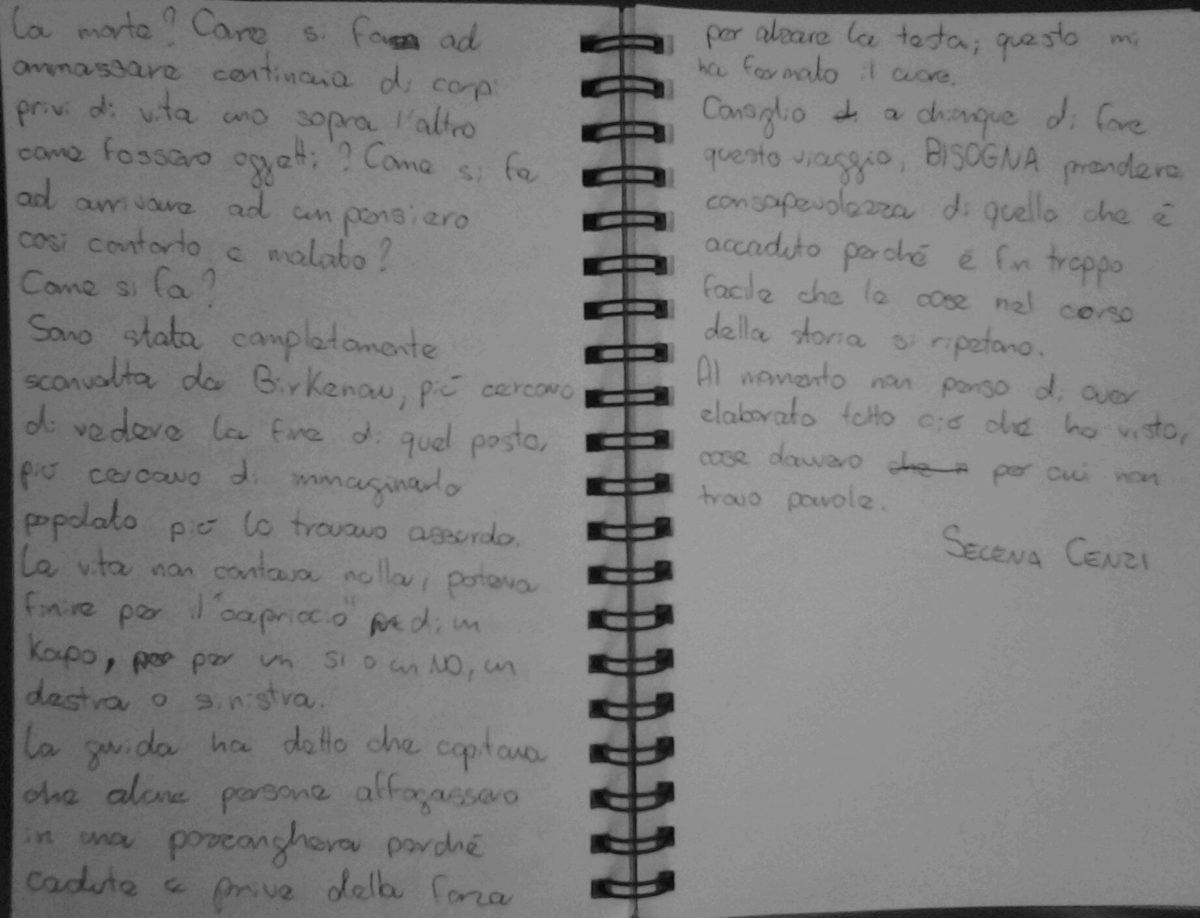 la morte? Come si fa ad
ammassare centinaia di corpi
privi di vita uno sopra l'altro
come fossero oggetti? Come si fa
ad arrivare ad un pensiero
così contorto e malato?
Come si fa?
Sono stata completamente
sconvolta da Birkenau, più cercavo
di vedere la fine di quel posto,
più cercavo di immaginarlo
popolato più lo trovavo assurdo.
La vita non contava nulla, poteva
finire per il "capriccio" di un
Kapo, per un si o un NO, un
destra o sinistra.
La guida ha detto che capitava
che alcune persone affogassero
in una pozzanghera perché
cadute e prive della forza
per alzare la testa; questo mi
ha fermato il cuore.
Consiglio a chiunque di fare
questo viaggio, BISOGNA prendere
consapevolezza di quello che è
accaduto perché è fin troppo
facile che le cose nel corso
della storia si ripetano.
Al momento non penso di aver
elaborato tutto ciò che ho visto,
cose davvero per cui non
trovo parole.
SELENA CENZI